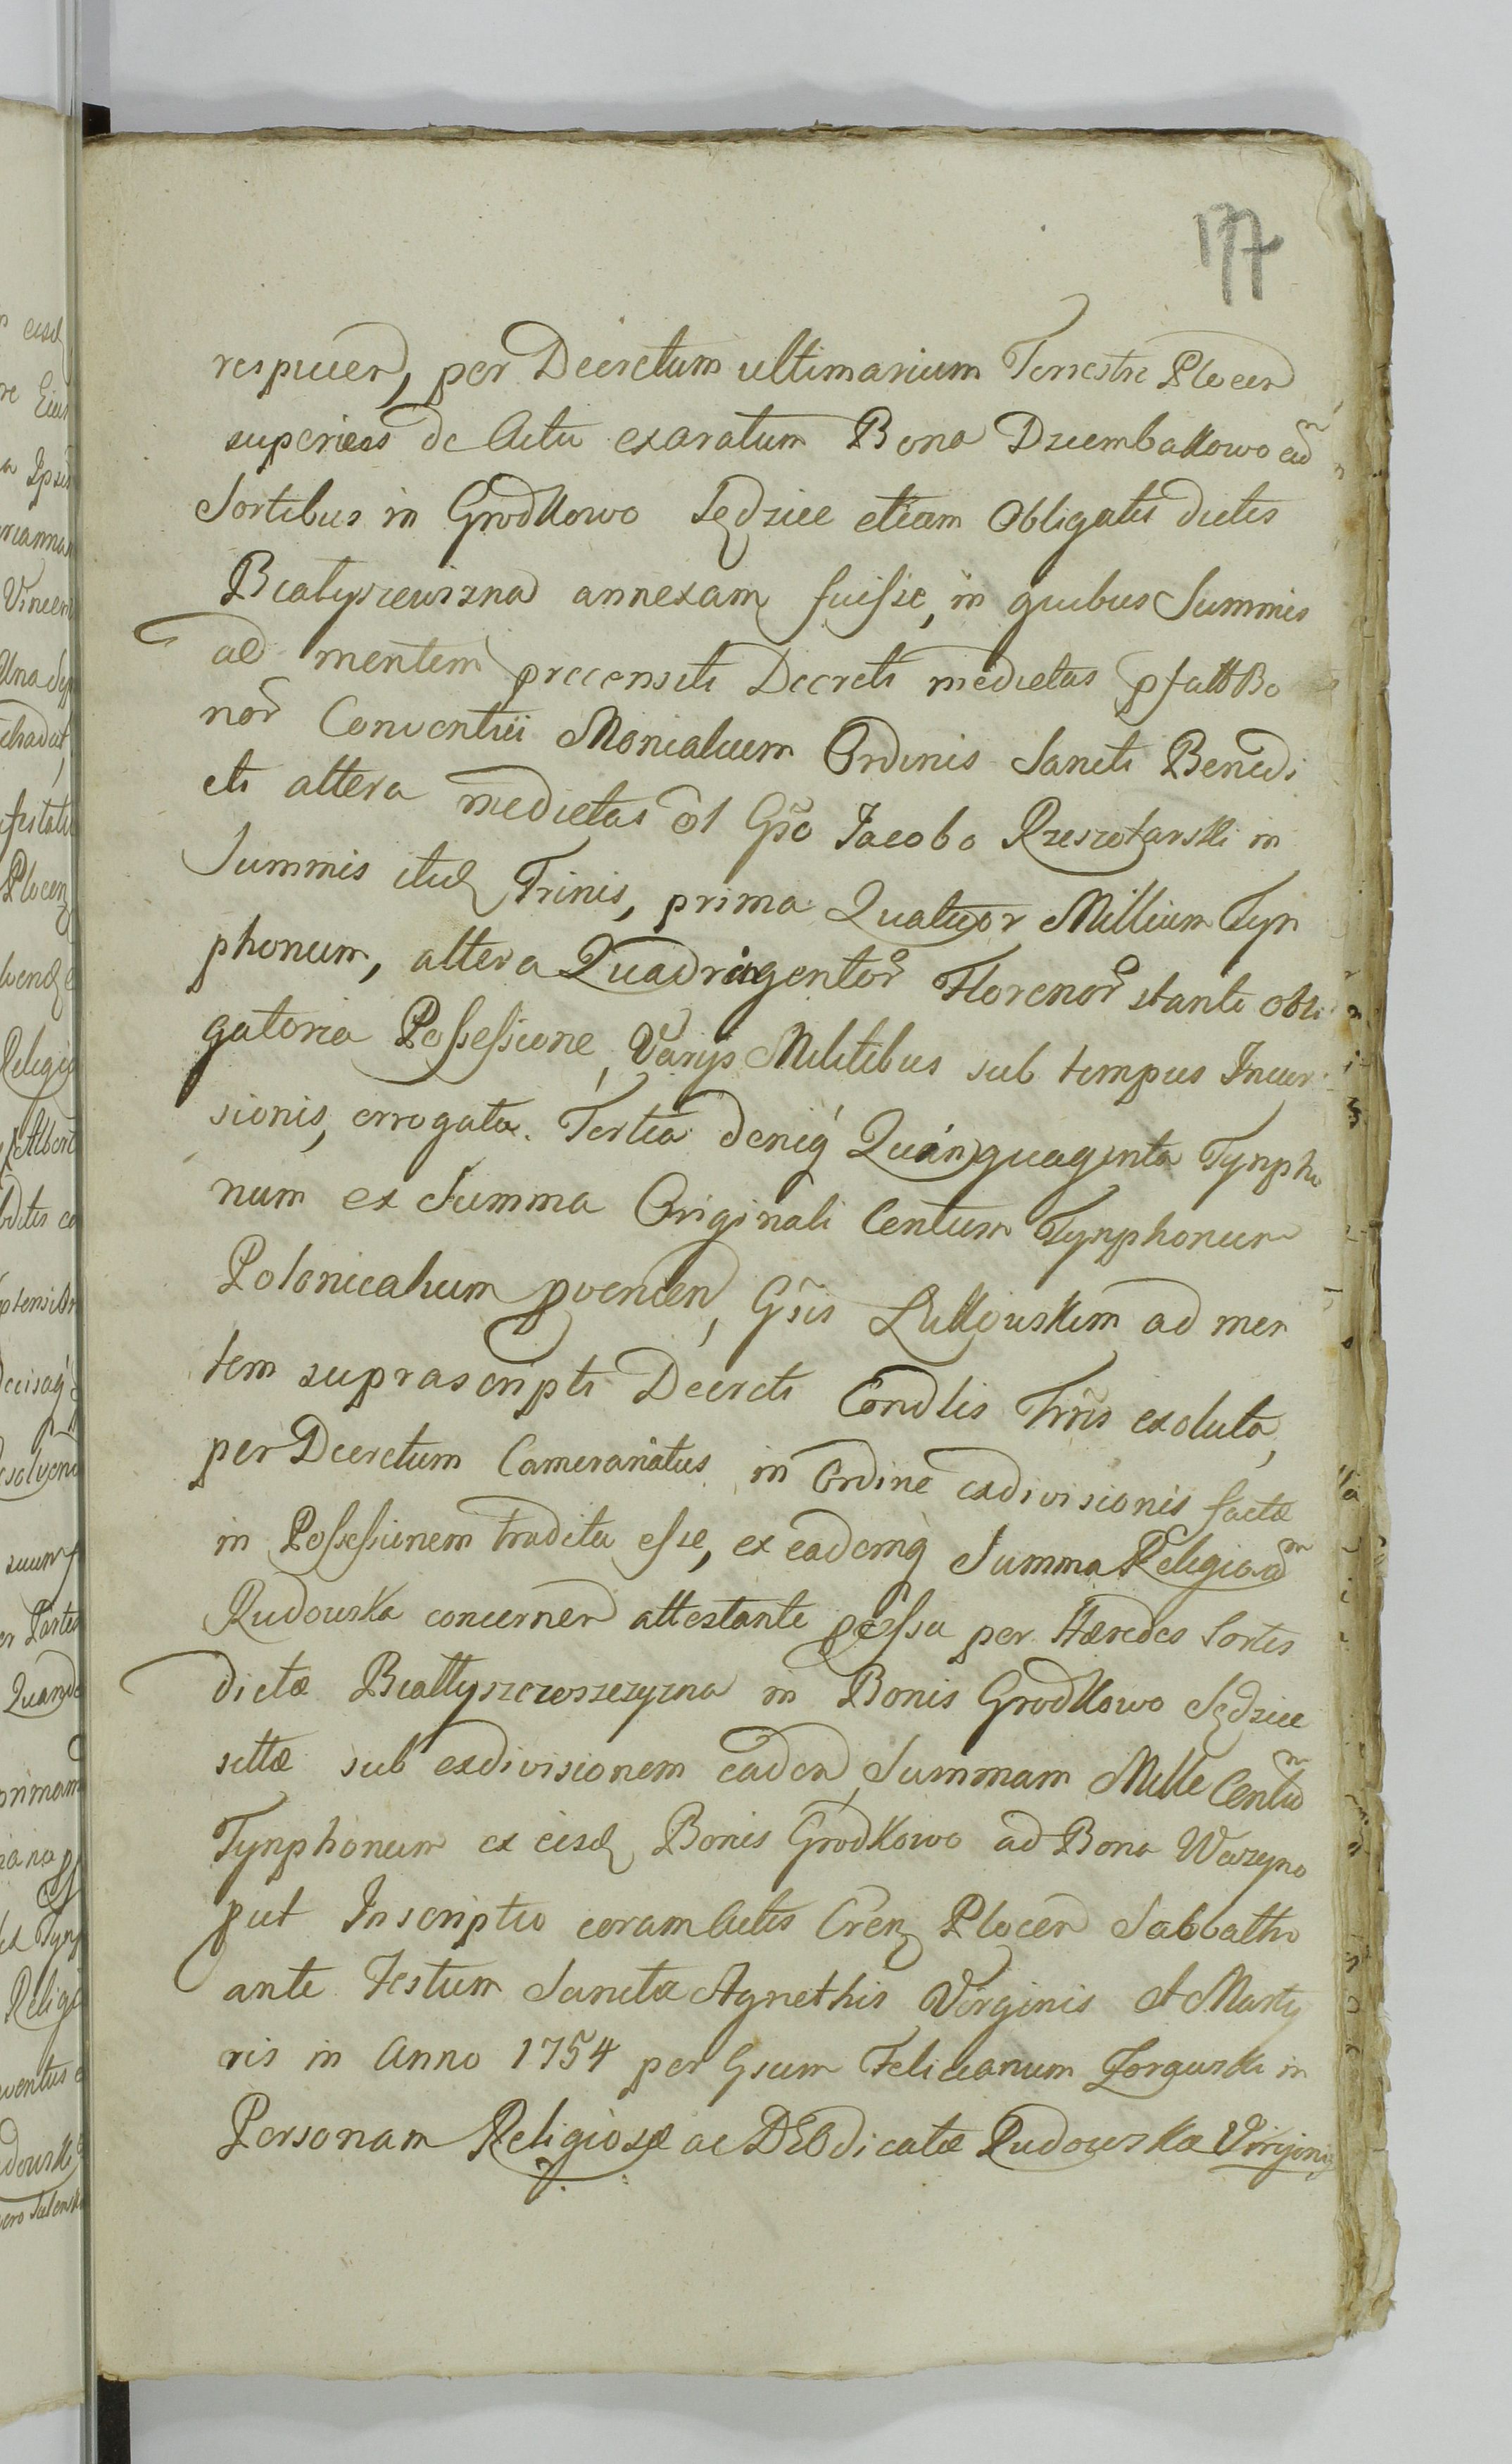 177
respuen, per Decretum ultimarium Terrestre Plocen
superius de Actu exaratum Bona Dziembakowo cũ
Sortibus in Grodkowo Sędzice etiam Obligatis dictis
Białyszewizna annexam fuisse, in quibus Summis
ad mentem praecensiti Decreti medietas pfatt Bo
nor Conventui Monialium Ordinis Sancti Benedi
cti altera medietas Gso Jacobo Rzeszotarski in
Summis itid Trinis, prima Quatuor Millium Tyn
phonum, altera Quadringentor Florenor stante obli
gatoria Possessione, Varijs Militibus sub tempus Incur
sionis, errogata. Tertia deniq Quinquaginta Tynpho
num ex Summa Originali Centum Tynphonum
Polonicalium pvenien, Gsis Lukowskim ad men
tem suprascripti Decreti Condlis Trris exoluta,
per Decretum Cameranatus in Ordine exdivisionis factæ
in Possessionem tradita esse, ex eademq Summa Religiosã
Rudowska concernen attestante pcessu per Hæredes Sortis
dictæ Beattyszczeszezyzna in Bonis Grodkowo Sędzice
sittæ sub exdivisionem eaden, Summam Mille Centũ
Tynphonum ex eisd Bonis Grodkowo ad Bona Warzyno
put Inscriptio coram Actis Cren Plocen Sabbatho
ante Festum Sanctæ Agnethis Virginis et Marty
ris in Anno 1754 per Gsum Felicianum Zorawski in
Personam Religiosæ ac DEO dicatæ Rudowska Virginis